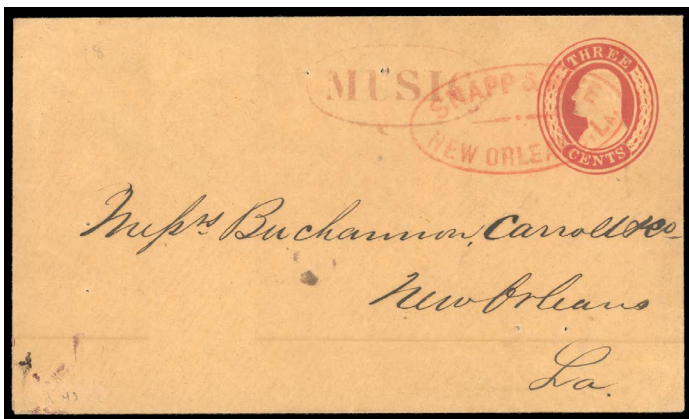 18
MUSIC
SNAPP &
NEW ORLEA
LA.
THREE
CENTS
Messrs Buchannon, Carroll & Co
New Orleans
La.
43